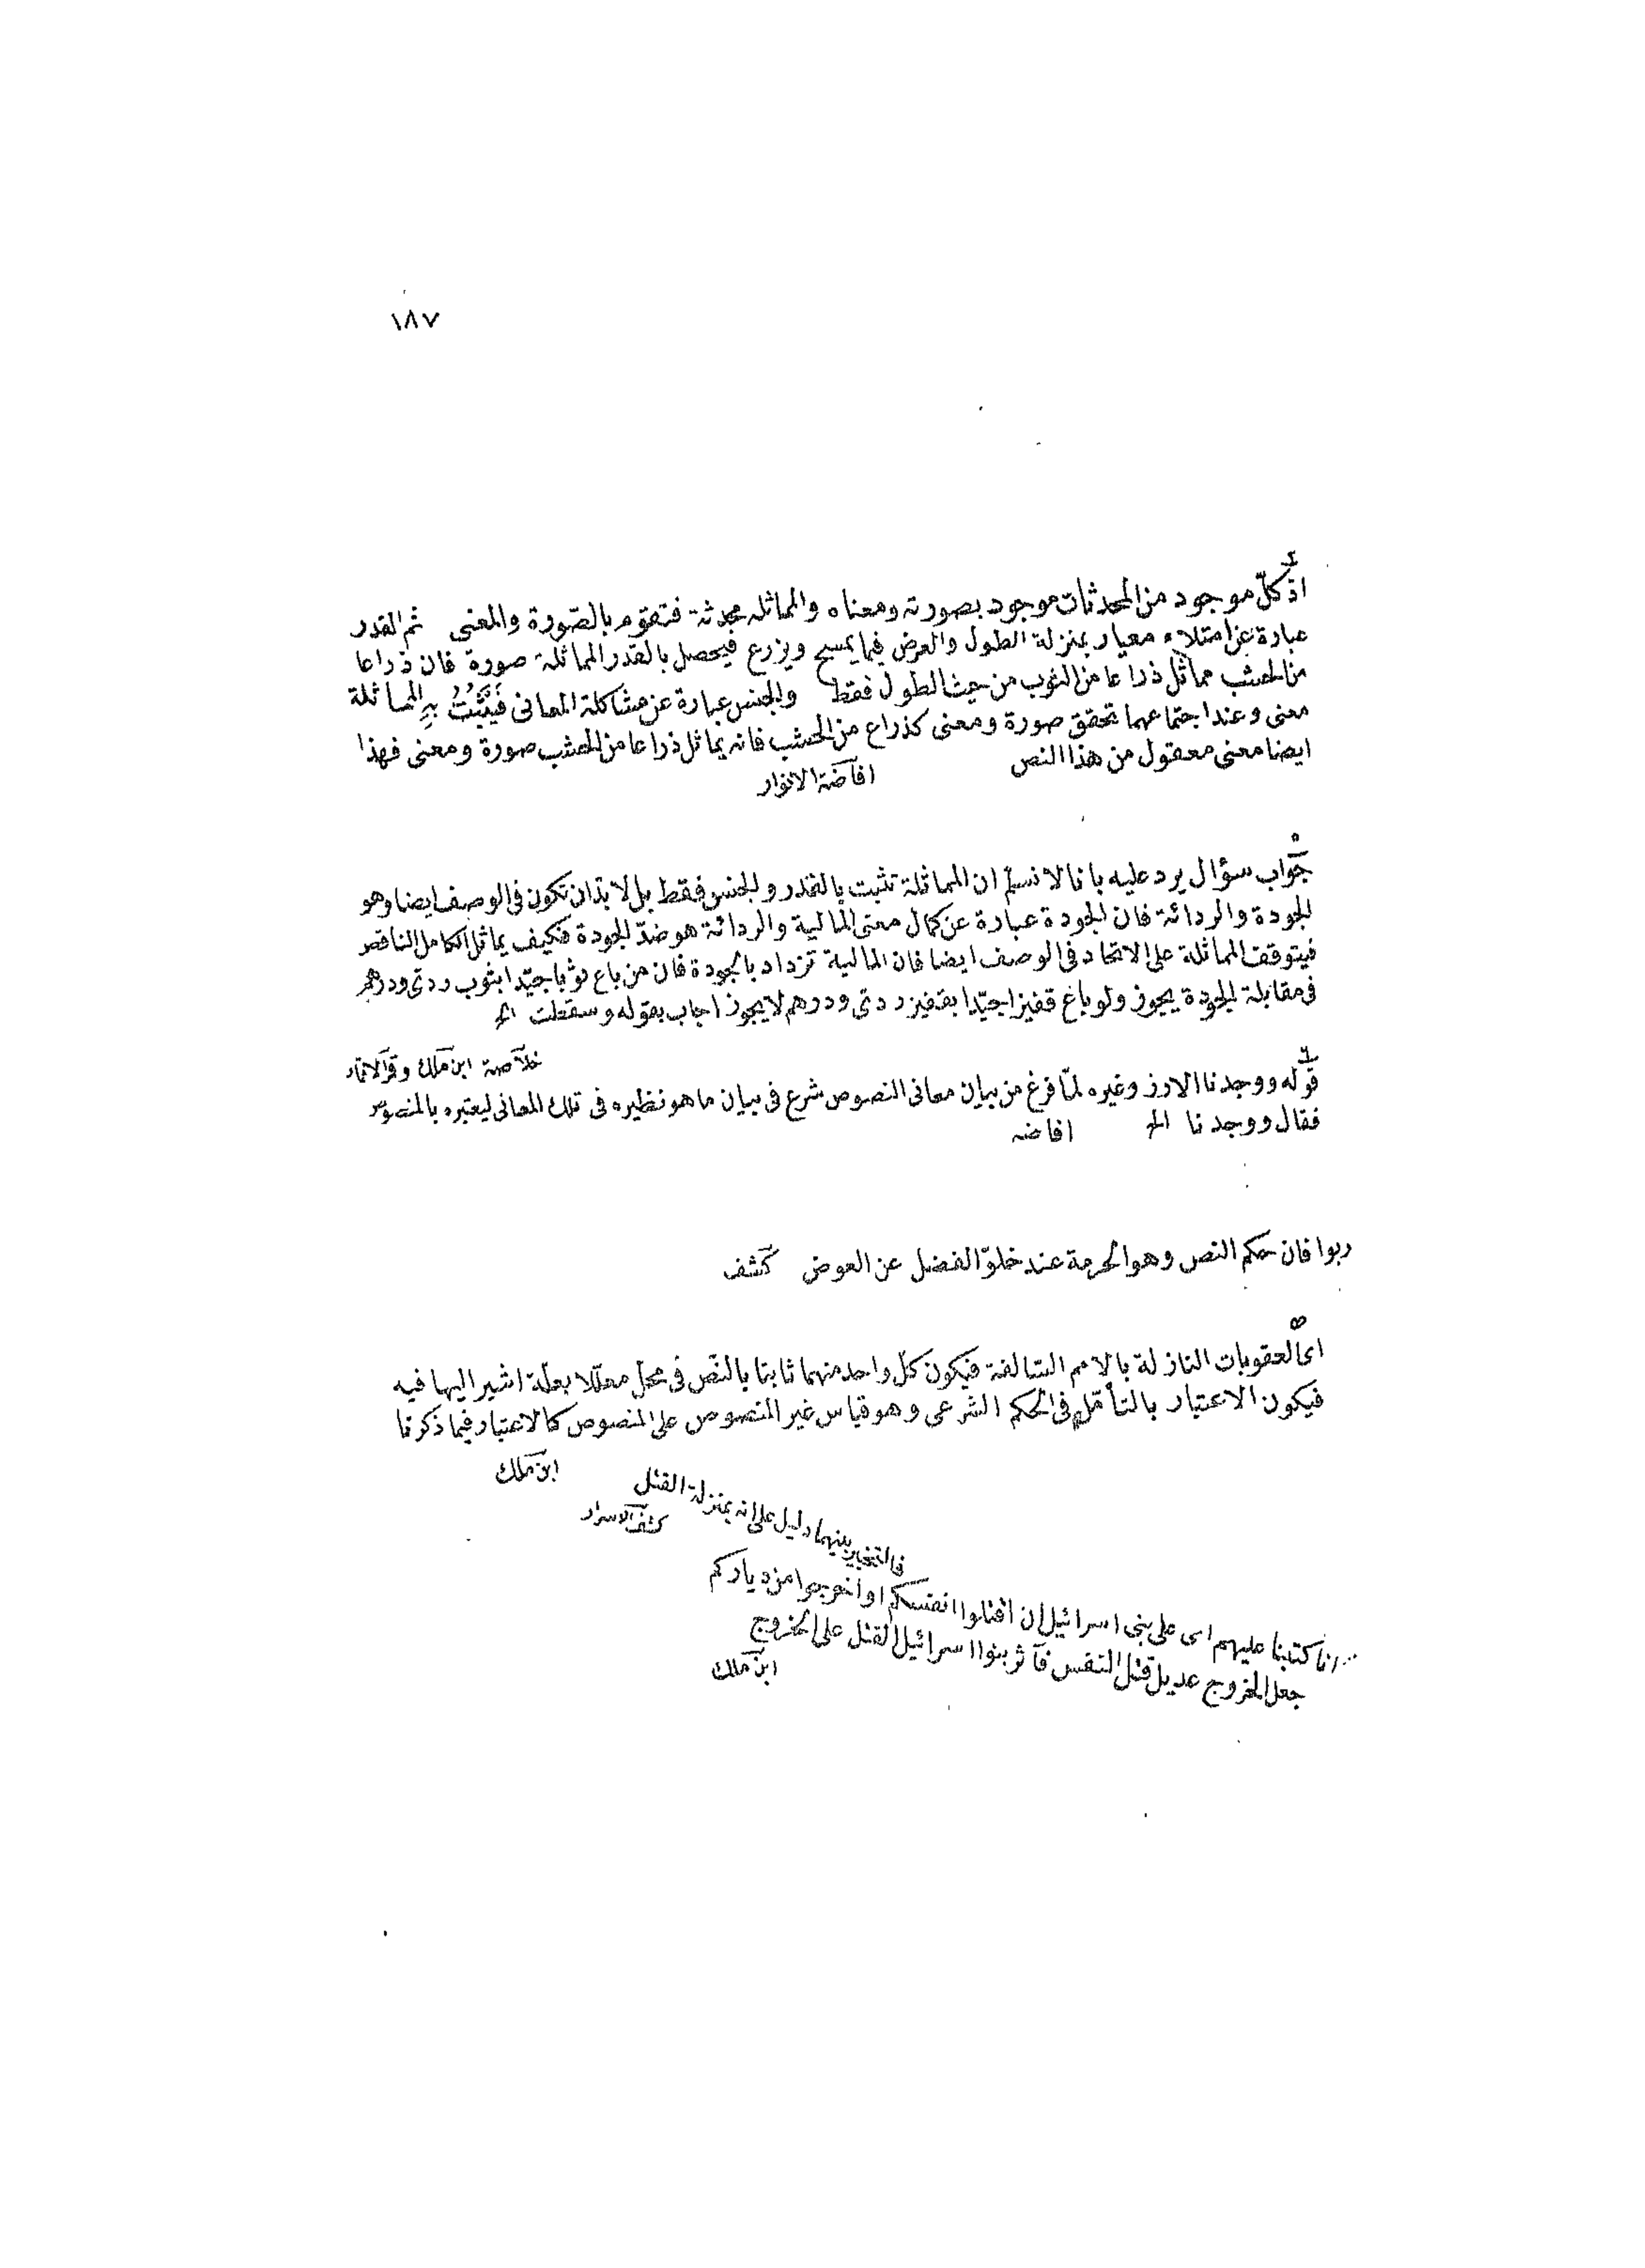 ١٨٧
٤
اذ كلّ موجود من المحدثات موجود بصورته ومعناه والمماثله محدثة فتقوم بالصّورة والمعنى ثم القدر
عبارة عن امتلاء معيار بمنزلة الطول والعرض فيما يمسح ويزرع فيحصل بالقدر المماثلة صورة فان ذراعا
من الخشب مماثل ذراعا من الثوب من حيث الطول فقط والجنس عبارة عن مشاكلة المعانى فيثبت به المماثلة
معنى وعند اجتماعهما تحقق صورة ومعنى كذراع من الخشب فانه يماثل ذراعا من الخشب صورة ومعنى فهذا
ايضا معنى معقول من هذا النص
افاضة الانوار
٥
جواب سؤال يرد عليه بانا لا نسلم ان المماثلة تثبت بالقدر والجنس فقط بل لا بدّ ان تكون فى الوصف ايضا وهو
الجودة والردائة فان الجودة عبارة عن كمال معنى المالية والردائة هو ضدّ الجودة فكيف يماثل الكامل الناقص
فيتوقف المماثلة على الاتحاد فى الوصف ايضا فان المالية تزداد بالجودة فان من باع ثوبا جيّدا بثوب ردئ ودرهم
فى مقابلة الجودة يجوز ولو باع قفيزا جيّدا بقفيز ردئ ودرهم لا يجوز اجاب بقوله وسقطت الخ
خلاصة ابن ملك وقمر الاقمار
٦
قوله ووجدنا الارز وغيره لمّا فرغ من بيان معانى النصوص شرع فى بيان ما هو نظيره فى تلك المعانى ليعتبره بالمنصوص
فقال ووجدنا الخ افاضه
ربوا فان حكم النص وهو الحرمة عند خلوّ الفضل عن العوض كشف
اى العقوبات النازلة بالامم السّالفة فيكون كلّ واحد منهما ثابتا بالنّص فى محل معلّلا بعلّة اشير اليها فيه
فيكون الاعتبار بالتأمّل فى الحكم الشرعى وهو قياس غير المنصوص على المنصوص كالاعتبار فيما ذكرنا
ابن ملك
فالتخيير بينهما دليل على انه بمنزلة القتل
كشف الاسرار
انا كتبنا عليهم اى على بنى اسرائيل ان اقتلوا انفسكم او اخرجوا من دياركم
جعل الخروج عديل قتل النفس فآثر بنوا اسرائيل القتل على الخروج
ابن ملك